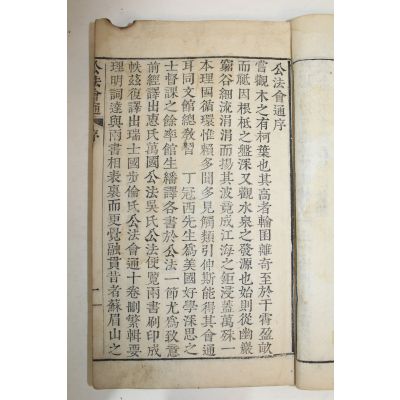 公法會通序
嘗觀木之有柯葉也其高者輪囷離奇至於干霄盈畝
而胝因根柢之盤深又觀水泉之發源也始則從幽巖
窮谷細流涓涓而揚其波竟成江海之鉅浸蓋萬殊一
本理固循環惟賴多聞多見觸類引伸斯能得其會通
耳同文館總教習 丁冠西先生爲美國好學深思之
士督課之餘率館生繙譯各書於公法一節尤爲致意
前經譯出惠氏萬國公法吳氏公法便覽兩書刷印成
帙茲復譯出瑞士國步倫氏公法會通十卷刪繁輯要
理明詞達與兩書相表裏而更覺融貫昔者蘇眉山之
公法會通 序 一